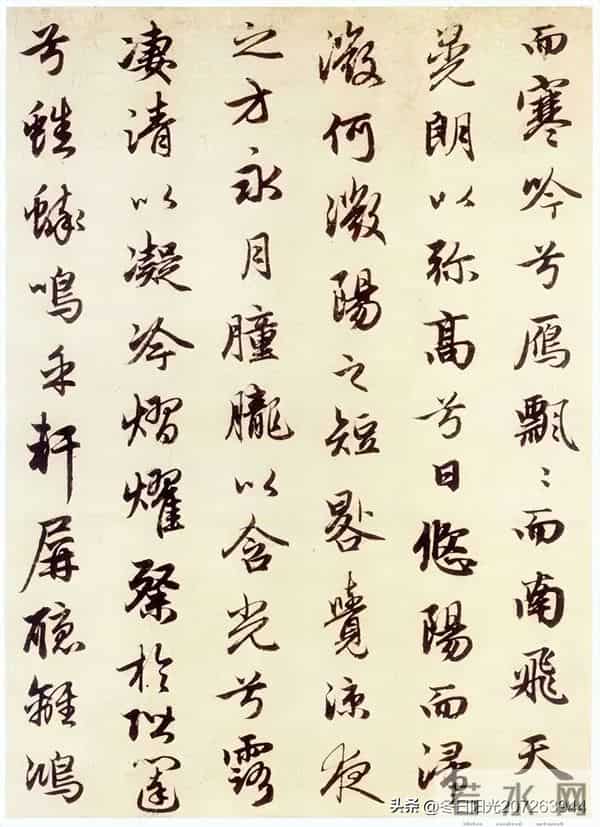 而寒吟兮鴈飄々而南飛天
晃朗以弥高兮日悠陽而浸
微何微陽之短晷覺涼夜
之方永月朣朧以含光兮露
凄清以凝冷熠燿粲於階闥
兮蟋蟀鳴乎軒屏聽離鴻
若水网
头条 @冬日阳光207263944